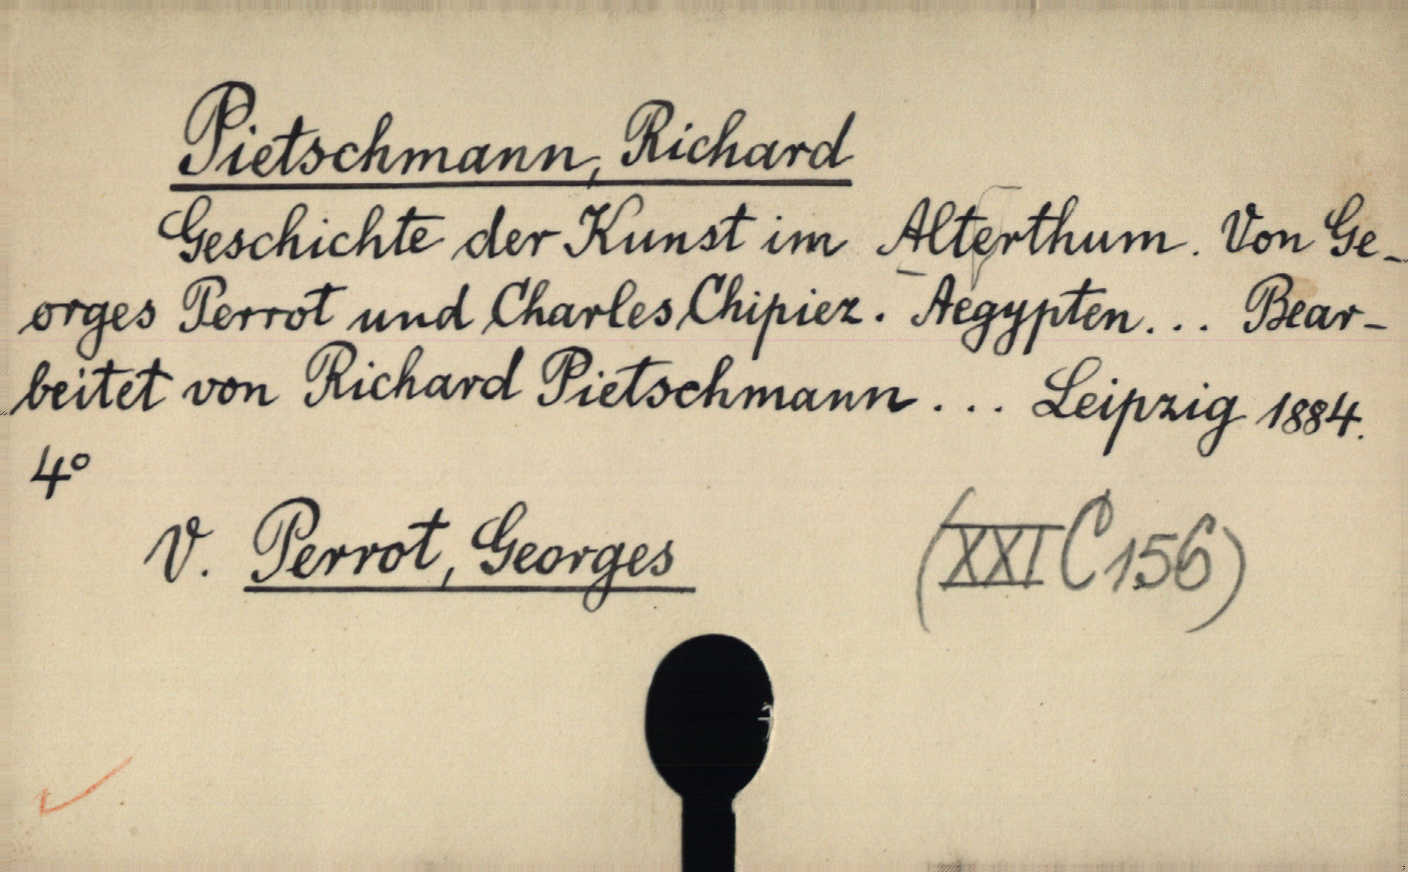 Pietschmann, Richard
Geschichte der Kunst im Alterthum. Von Ge-
orges Perrot und Charles Chipiez. Aegypten... Bear-
beitet von Richard Pietschmann... Leipzig 1884.
4°
V. Perrot, Georges
(XXI C 156)